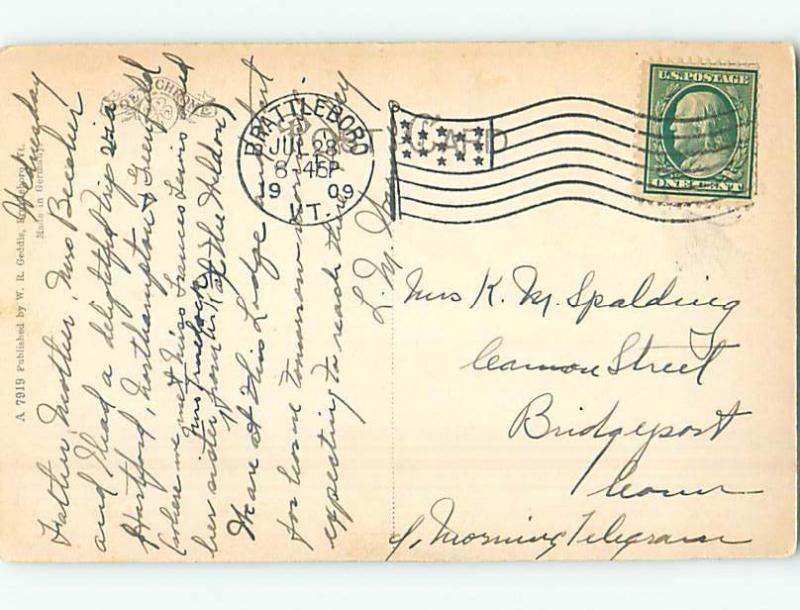 A 7919 Published by W. R. Geddis, Brattleboro, Vt.
Made in Germany.
Wednesday
Father, Mother, Mrs Beecher
and I had a delightful trip via
Hartford, Northampton & Greenfield
(where we met Miss Frances Lewis and
her sister
from
at the Weldon)
We are at this Lodge
for home tomorrow
expecting to reach there
L. M.
BRATTLEBORO
JUL 28
8-45P
1909
VT.
POST CARD
U.S. POSTAGE
ONE CENT
Mrs K. M. Spalding
Cannon Street
Bridgeport
Conn
c/o Morning Telegram